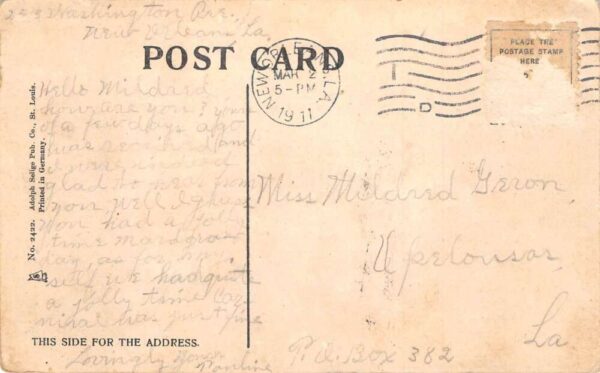 Washington Ave.,
New Orleans La.
POST CARD
PLACE THE
POSTAGE STAMP
HERE
NEW ORLEANS, LA.
MAR 2
5-PM
1911
Hello Mildred
how are you? your
of a few days ago
was received and
we were indeed
glad to hear from
you well I guess
you had a jolly
time mardigras
day, as for my
self we had quite
a jolly time Car
nival was just fine
Lovingly yours
Pauline
Miss Mildred Geron
Opelousas,
La
P.O. Box 382
No. 2422. Adolph Selige Pub. Co., St. Louis.
Printed in Germany.
THIS SIDE FOR THE ADDRESS.